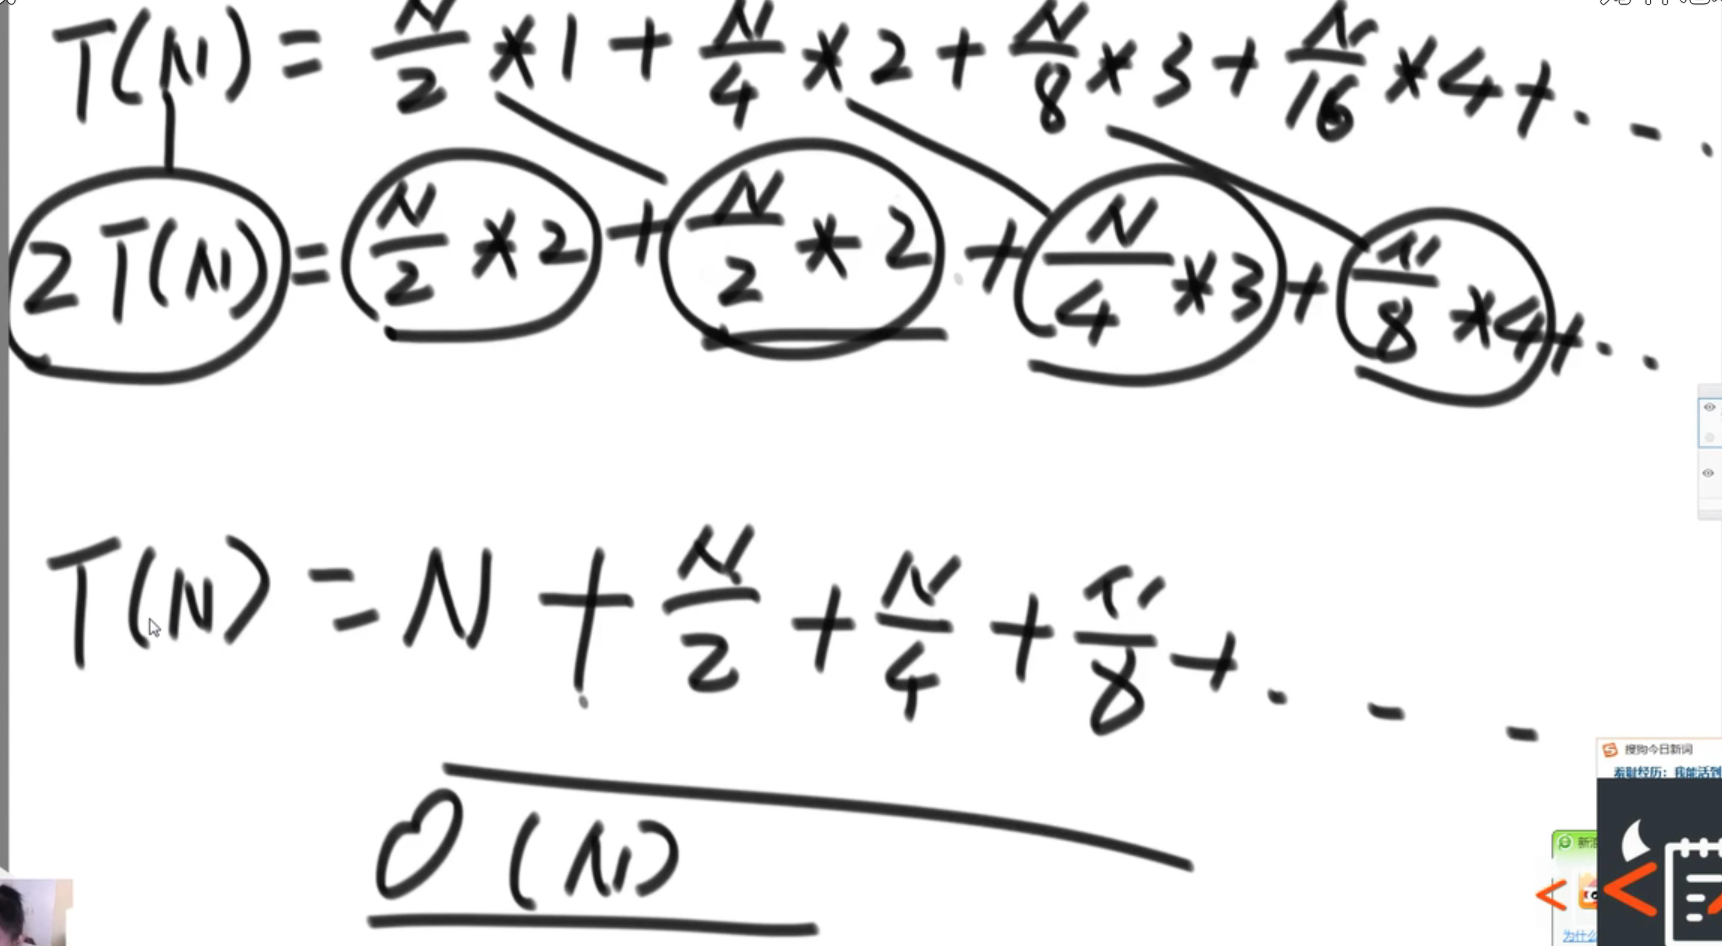 T(N) = N/2 * 1 + N/4 * 2 + N/8 * 3 + N/16 * 4 + ...
2T(N) = N/2 * 2 + N/2 * 2 + N/4 * 3 + N/8 * 4 + ...
T(N) = N + N/2 + N/4 + N/8 + ...
O(N)
搜狗今日新词
为什么